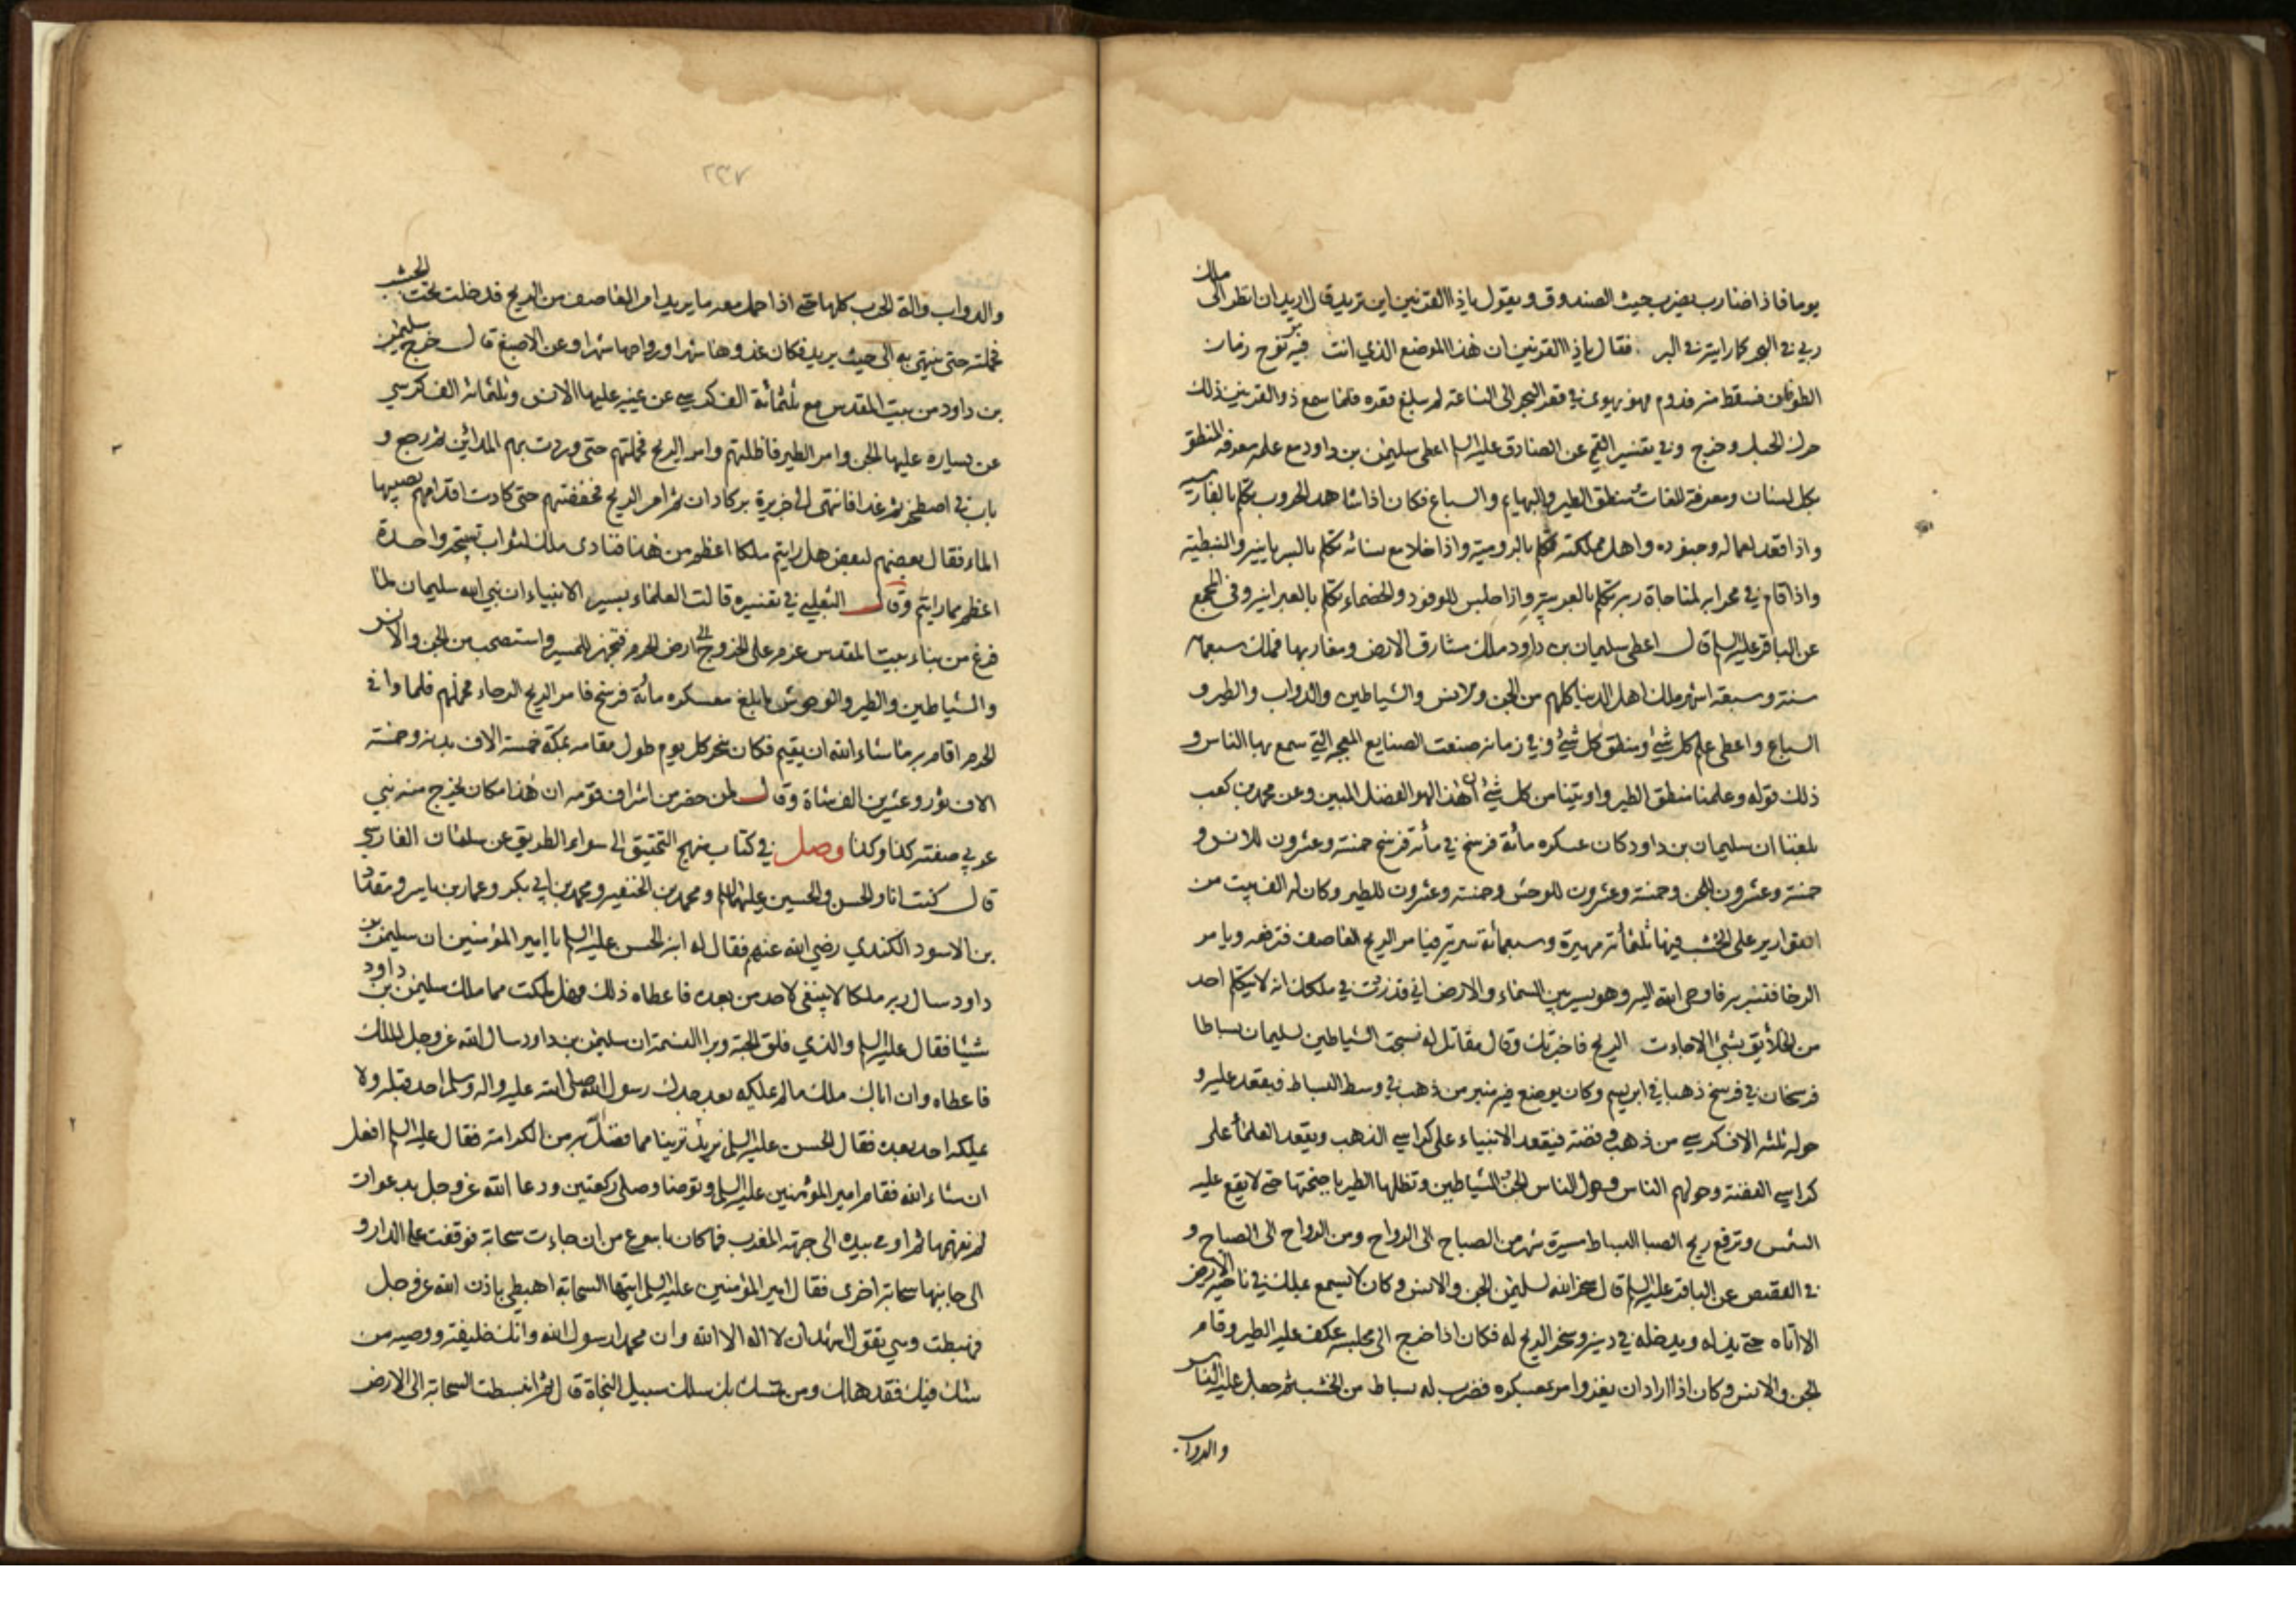 يوما فاذا ضارب يضرب حيث الصندوق ويقول ياذا القرنين اين تريد قال اريد ان انظر الى ملك
ربي في البحر كما رايته في البر فقال ياذا القرنين ان هذا الموضع الذي انت فيه مر نوح زمان
الطوفان فسقط منه قدوم فهو يهوي في قعر البحر الى الساعة لم يبلغ قعره فلما سمع ذو القرنين ذلك
حرك الحبل وخرج وفي تفسير القمي عن الصادق عليه السلم اعطى سليمن بن داود مع علمه معرفة المنطق
بكل لسان ومعرفة اللغات ومنطق الطير والبهايم والسباع فكان اذا شاهد الحروب تكلم بالفارسيه
واذا قعد لعماله وجنوده واهل مملكته تكلم بالرومية واذا خلا مع نسائه تكلم بالسريانيه والنبطيه
واذا قام في محرابه لمناجاة ربه تكلم بالعربيه واذا جلس للوفود والخصماء تكلم بالعبرانيه وفي المجمع
عن الباقر عليه السلم قال اعطى سليمان بن داود ملك مشارق الارض ومغاربها فملك سبعمائة
سنة وسبعة اشهر ملك اهل الدنيا كلهم من الجن والانس والشياطين والدواب والطير و
السباع واعطى علم كل شئ ومنطق كل شئ وفي زمانه صنعت الصنايع المعجبه التي سمع بها الناس و
ذلك قوله وعلمنا منطق الطير واوتينا من كل شئ ان هذا لهو الفضل المبين وعن محمد بن كعب
بلغنا ان سليمان بن داود كان عسكره مائة فرسخ في مائة فرسخ خمسة وعشرون للانس و
خمسة وعشرون للجن وخمسة وعشرون للوحش وخمسة وعشرون للطير وكان له الف بيت من
القوارير على الخشب فيها ثلثمائة مهيرة وسبعمائة سرية فيامر الريح العاصف فترفعه ويامر
الرخا فتسير به فاوحى الله اليه وهو يسير بين السماء والارض اني قد زدت في ملكك انه لا يتكلم احد
من الخلائق بشئ الا جاءت الريح فاخبرتك وقال مقاتل له نسجت الشياطين لسليمان بساطا
فرسخان في فرسخ ذهبا في ابريسم وكان يوضع فيه منبر من ذهب في وسط البساط فيقعد عليه و
حوله ثلثه الاف كرسي من ذهب وفضة فيقعد الانبياء على كراسي الذهب ويقعد العلماء على
كراسي الفضة وحولهم الناس وحول الناس الجن والشياطين وتظلها الطير باجنحتها حتى لا يقع عليه
الشمس وترفع ريح الصبا البساط مسيرة شهر من الصباح الى الرواح ومن الرواح الى الصباح و
في القصص عن الباقر عليه السلم قال سخر الله لسليمن الجن والانس وكان لا يسمع بملك في ناحية الارض
الا اتاه حتى يذله ويدخله في دينه وسخر الريح له فكان اذا خرج الى مجلسه عكف عليه الطير وقام
الجن والانس وكان اذا اراد ان يغزو امر بعسكره فضرب له بساط من الخشب ثم جعل عليه الناس
والدواب
٢٣٧
والدواب والة الحرب كلها حتى اذا حمل معه ما يريد امر العاصف من الريح فدخلت تحت الخشب
فحملته حتى ينتهي به الى حيث يريد فكان غدوها شهرا ورواحها شهرا وعن الاصبغ قال خرج سليمن
بن داود من بيت المقدس مع ثلثمائة الف كرسي عن يمينه عليها الانس وثلثمائه الف كرسي
عن يساره عليها الجن وامر الطير فاظلتهم وامر الريح فحملتهم حتى وردت بهم المدائن ثم رجع و
بات في اصطخر ثم غدا فانتهى الى جزيرة بركادان ثم امر الريح فخفضتهم حتى كادت اقدامهم يصيبها
الماء فقال بعضهم لبعض هل رايتم ملكا اعظم من هذا فنادى ملك لثواب تسبيحة واحدة
اعظم مما رايتم وقال الثعلبي في تفسيره قالت العلماء بسير الانبياء ان نبي الله سليمان لما
فرغ من بناء بيت المقدس عزم على الخروج الى ارض الحرم فتجهز للمسير واستصحب من الجن والانس
والشياطين والطير والوحوش ما بلغ معسكره مائة فرسخ فامر الريح الرخاء فحملتهم فلما وافى
الحرم اقام به ما شاء الله ان يقيم فكان ينحر كل يوم طول مقامه بمكة خمسة الاف بدنه وخمسة
الاف ثور وعشرين الف شاة وقال لمن حضر من اشراف قومه ان هذا مكان يخرج منه نبي
عربي صفته كذا وكذا وصل في كتاب منهج التحقيق الى سواء الطريق عن سلمان الفارسي
قال كنت انا والحسن والحسين عليهما السلم ومحمد بن الحنفيه ومحمد بن ابي بكر وعمار بن ياسر ومقداد
بن الاسود الكندي رضي الله عنهم فقال له ابنه الحسن عليه السلم يا امير المؤمنين ان سليمن بن
داود سال ربه ملكا لا ينبغي لاحد من بعده فاعطاه ذلك فهل ملكت مما ملك سليمن بن داود
شيئا فقال عليه السلم والذي فلق الحبة وبرا النسمة ان سليمن بن داود سال الله عز وجل الملك
فاعطاه وان اباك ملك ما لم يملكه بعد جدك رسول الله صلى الله عليه واله وسلم احد قبله ولا
يملكه احد بعده فقال الحسن عليه السلم نريد ترينا مما فضلك به من الكرامة فقال عليه السلم افعل
ان شاء الله فقام امير المؤمنين عليه السلم وتوضا وصلى ركعتين ودعا الله عز وجل بدعوات
لم نفهمها ثم اومى بيده الى جهة المغرب فما كان باسرع من ان جاءت سحابة فوقفت على الدار و
الى جانبها سحابة اخرى فقال امير المؤمنين عليه السلم ايتها السحابة اهبطي باذن الله عز وجل
فهبطت وهي تقول اشهد ان لا اله الا الله وان محمدا رسول الله وانك خليفته ووصيه من
شك فيك فقد هلك ومن تمسك بك سلك سبيل النجاة قال ثم انبسطت السحابة الى الارض